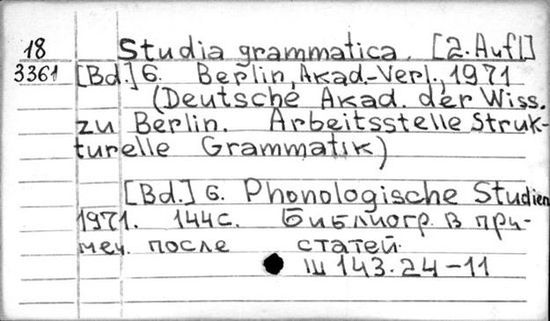 18 Studia grammatica. [2. Aufl]
3361 [Bd.] 6. Berlin, Akad-Verl., 1971
(Deutsche Akad. der Wiss.
zu Berlin. Arbeitsstelle Struk-
turelle Grammatik)
[Bd.] 6. Phonologische Studien
1971. 144с. Библиогр. в при-
меч. после статей.
Ш 143.24-11